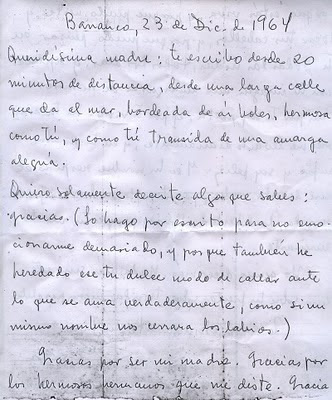 Barranco, 23 de Dic. de 1964
Queridísima madre: te escribo desde 20
minutos de distancia, desde una larga calle
que da al mar, bordeada de árboles, hermosa
como tú, y como tú transida de una amarga
alegría.
Quiero solamente decirte algo que sabes:
gracias. (Lo hago por escrito para no emo-
cionarme demasiado, y porque también he
heredado ese tu dulce modo de callar ante
lo que se ama verdaderamente, como si un
mismo nombre nos cerrara los labios.)
Gracias por ser mi madre. Gracias por
los hermosos hermanos que me diste. Gracia